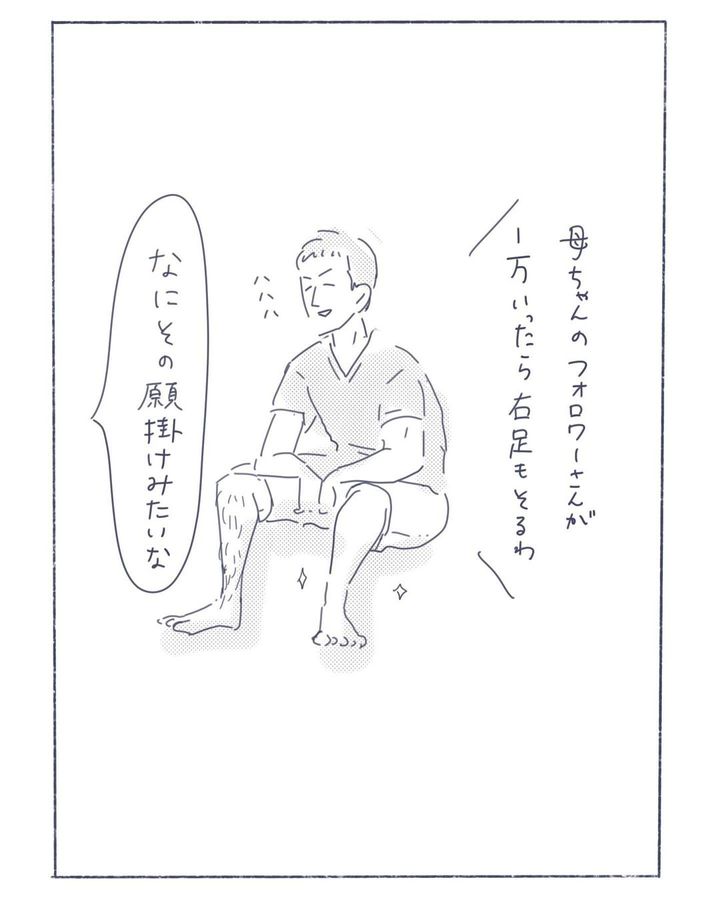 母ちゃんのフォロワーさんが
1万いったら右足もそるわ
ハハハ
なにその願掛けみたいな